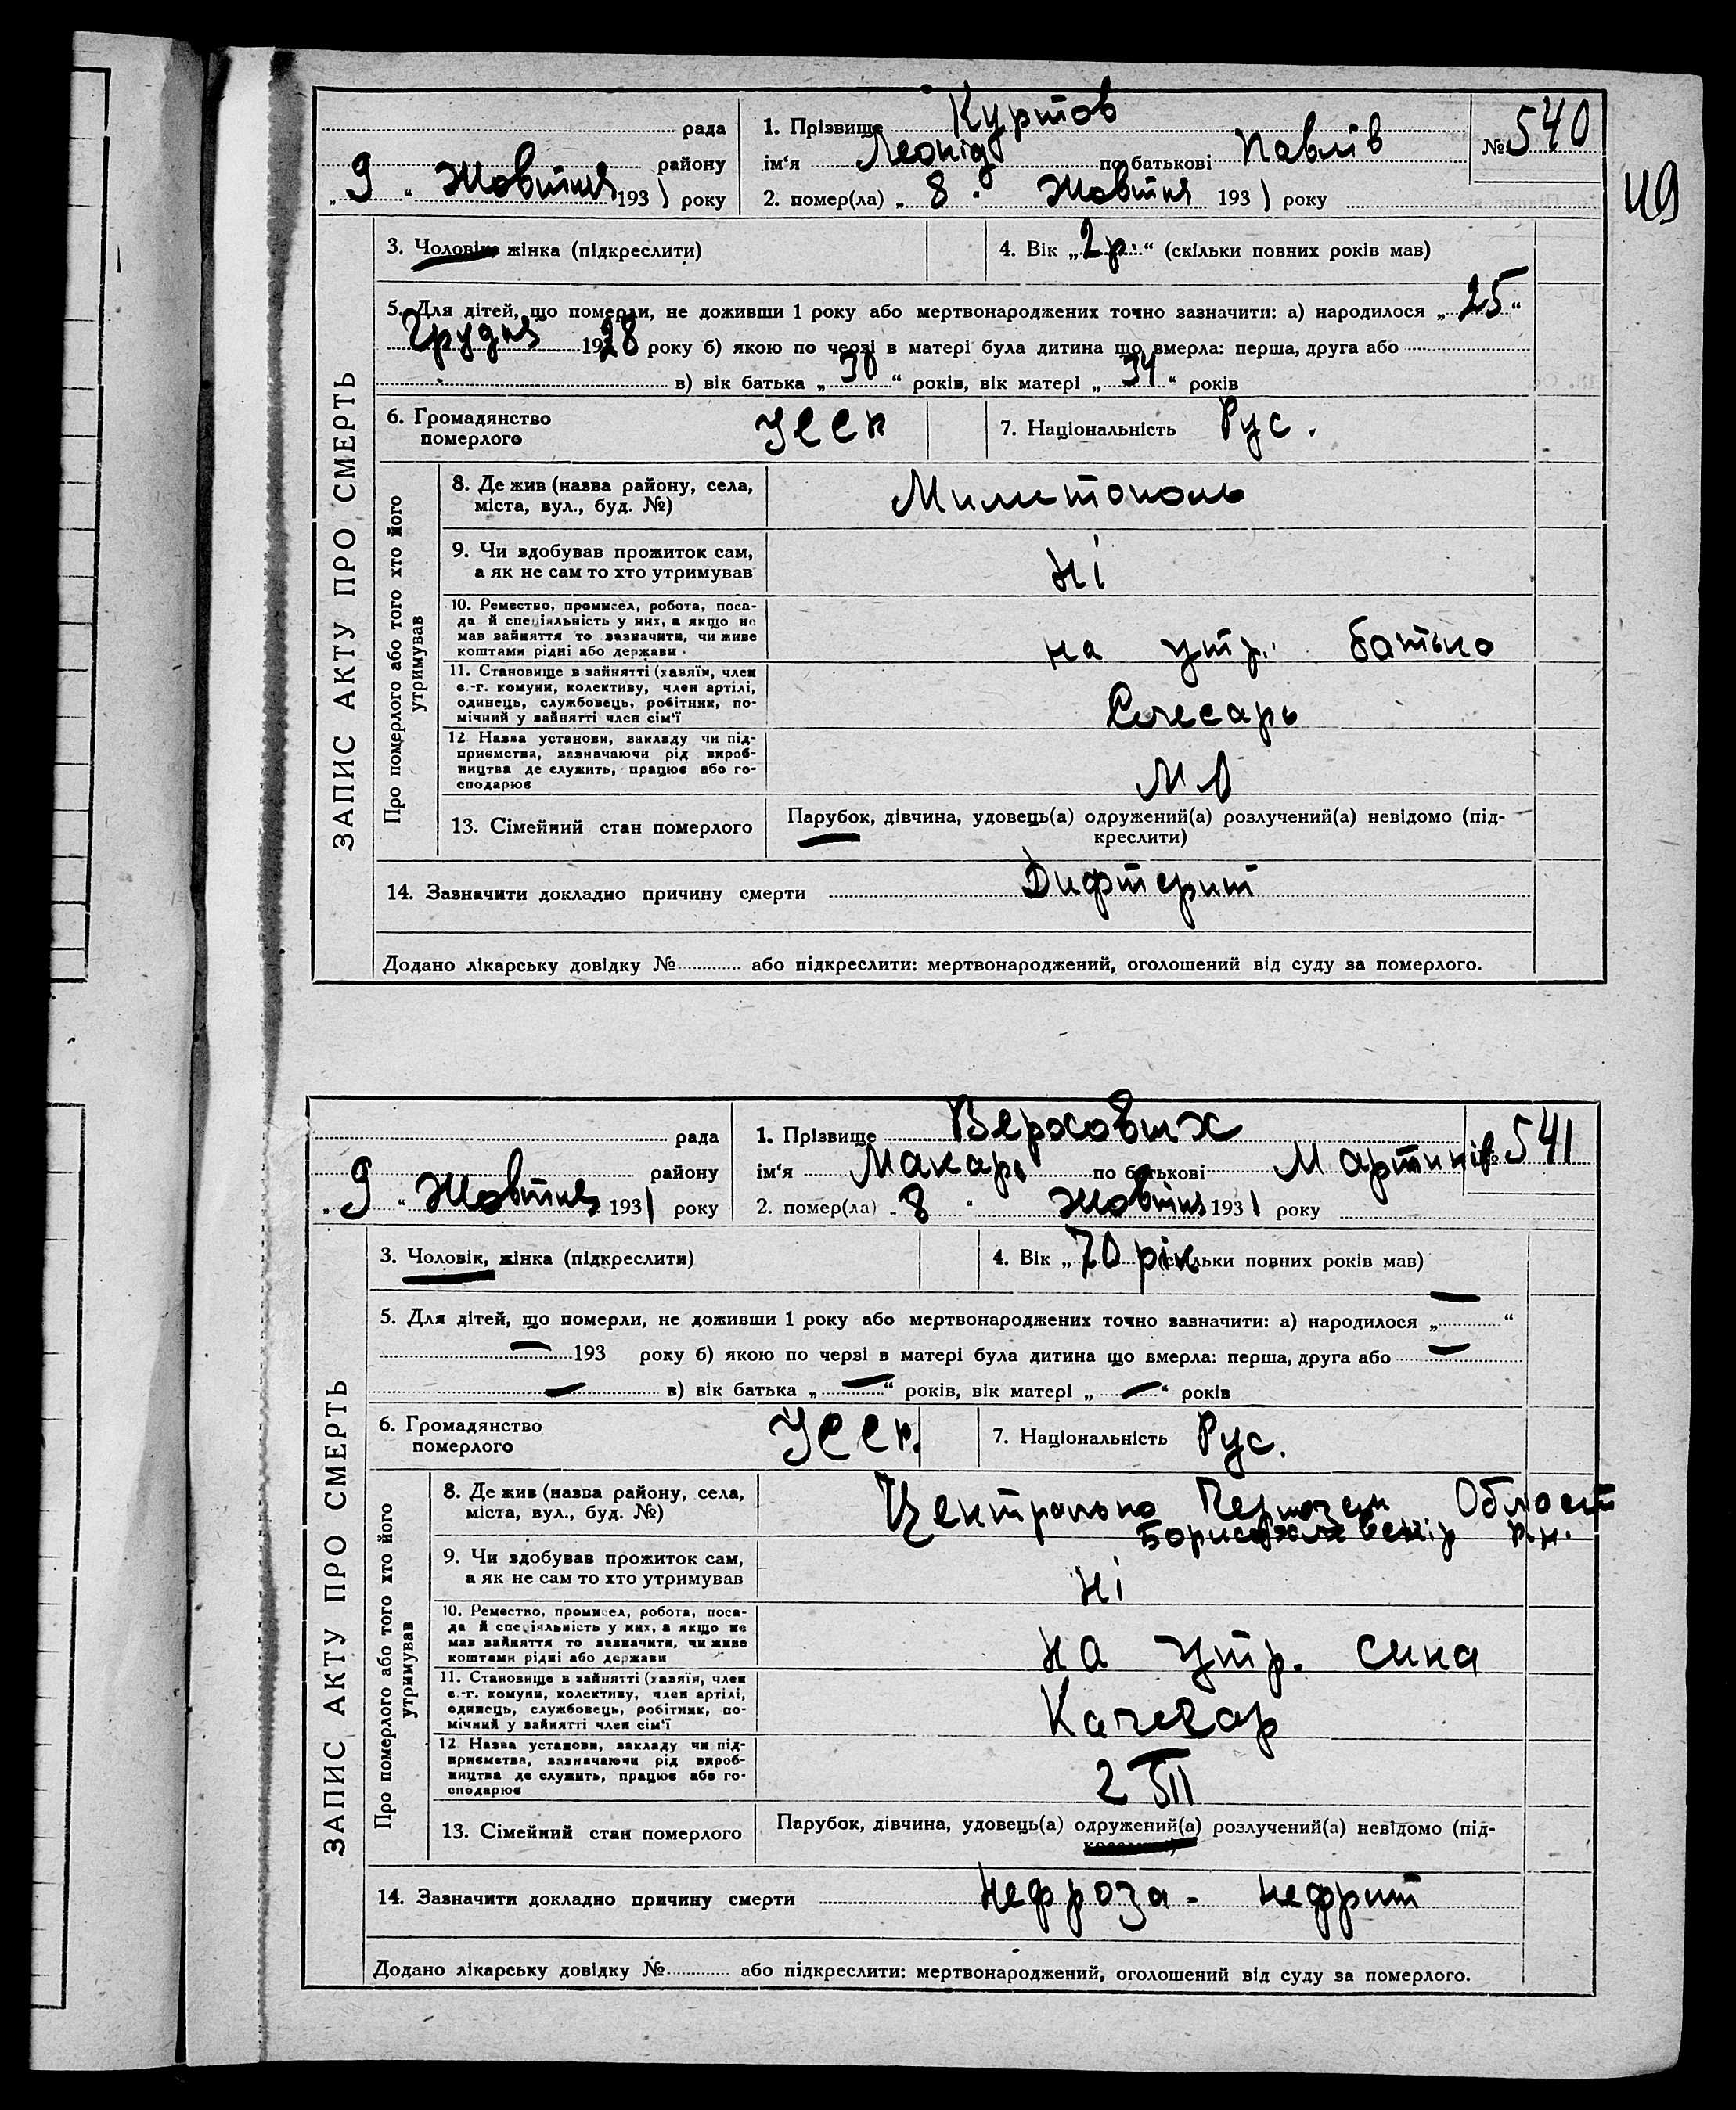 49
ЗАПИС АКТУ ПРО СМЕРТЬ
рада
району
„ 9 “ Жовтня 1931 року
1. Прізвище Куртов
№ 540
ім‘я Леонід по батькові Павлів
2. помер(ла) „ 8 “ Жовтня 1931 року
3. Чоловік, жінка (підкреслити)
4. Вік „ 2 р. “ (скільки повних років мав)
5. Для дітей, що померли, не доживши 1 року або мертвонароджених точно зазначити: а) народилося „ 25 “
Грудня 1928 року б) якою по черзі в матері була дитина що вмерла: перша, друга або
в) вік батька „ 30 “ років, вік матері „ 34 “ років
6. Громадянство померлого УССР
7. Національність Рус.
Про померлого або того хто його утримував
8. Де жив (назва району, села, міста, вул., буд. №) Милитополь
9. Чи здобував прожиток сам, а як не сам то хто утримував Ні
10. Ремество, промисел, робота, поса-
да й спеціяльність у них, а якщо не
мав зайняття то зазначити, чи живе
коштами рідні або держави
на утр. батька
11. Становище в зайнятті (хазяїн, член
с.-г. комуни, колективу, член артілі,
одинець, службовець, робітник, по-
мічний у зайнятті член сім‘ї
Слесарь
12. Назва установи, закладу чи під-
приємства, зазначаючи рід вироб-
ництва де служить, працює або го-
сподарює
13. Сімейний стан померлого
Парубок, дівчина, удовець(а) одружений(а) розлучений(а) невідомо (під-
креслити)
14. Зазначити докладно причину смерти Дифтерит
Додано лікарську довідку № або підкреслити: мертвонароджений, оголошений від суду за померлого.
ЗАПИС АКТУ ПРО СМЕРТЬ
рада
району
„ 9 “ Жовтня 1931 року
1. Прізвище
№ 541
ім‘я Макарь по батькові Мартинів
2. помер(ла) „ 8 “ Жовтня 1931 року
3. Чоловік, жінка (підкреслити)
4. Вік „ 70 рік (скільки повних років мав)
5. Для дітей, що померли, не доживши 1 року або мертвонароджених точно зазначити: а) народилося „ — “
— 193 року б) якою по черзі в матері була дитина що вмерла: перша, друга або —
— в) вік батька „ — “ років, вік матері „ — “ років
6. Громадянство померлого УССР.
7. Національність Рус.
Про померлого або того хто його утримував
8. Де жив (назва району, села, міста, вул., буд. №) Центрально Чернозем Област
р.н.
9. Чи здобував прожиток сам, а як не сам то хто утримував Ні
10. Ремество, промисел, робота, поса-
да й спеціяльність у них, а якщо не
мав зайняття то зазначити, чи живе
коштами рідні або держави
на утр. сина
11. Становище в зайнятті (хазяїн, член
с.-г. комуни, колективу, член артілі,
одинець, службовець, робітник, по-
мічний у зайнятті член сім‘ї
Качегар
12. Назва установи, закладу чи під-
приємства, зазначаючи рід вироб-
ництва де служить, працює або го-
сподарює
13. Сімейний стан померлого
Парубок, дівчина, удовець(а) одружений(а) розлучений(а) невідомо (під-
креслити)
14. Зазначити докладно причину смерти Нефроза - нефрит
Додано лікарську довідку № або підкреслити: мертвонароджений, оголошений від суду за померлого.